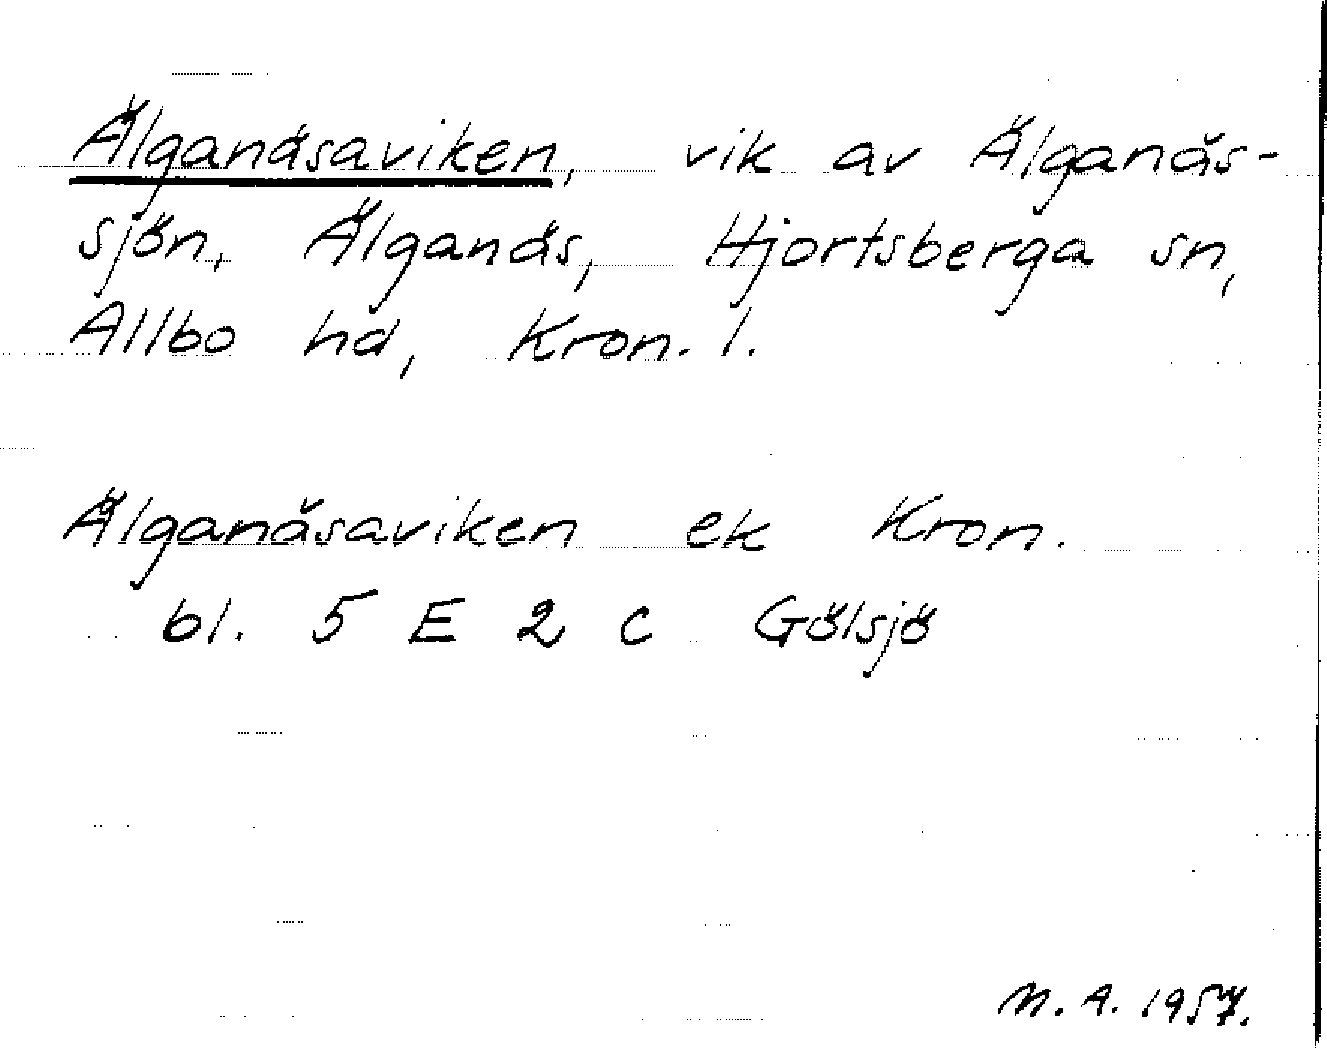 Älganäsaviken, vik av Älganäs-
sjön, Älganäs, Hjortsberga sn,
Allbo hd, Kron. l.
Älganäsaviken ek Kron.
bl. 5 E 2 c Gölsjö
M. A. 1957.